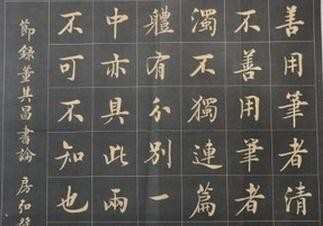 善用筆者清
不善用筆者
濁不獨連篇
體有分別一
中亦具此兩
不可不知也
節錄董其昌書論 房弘